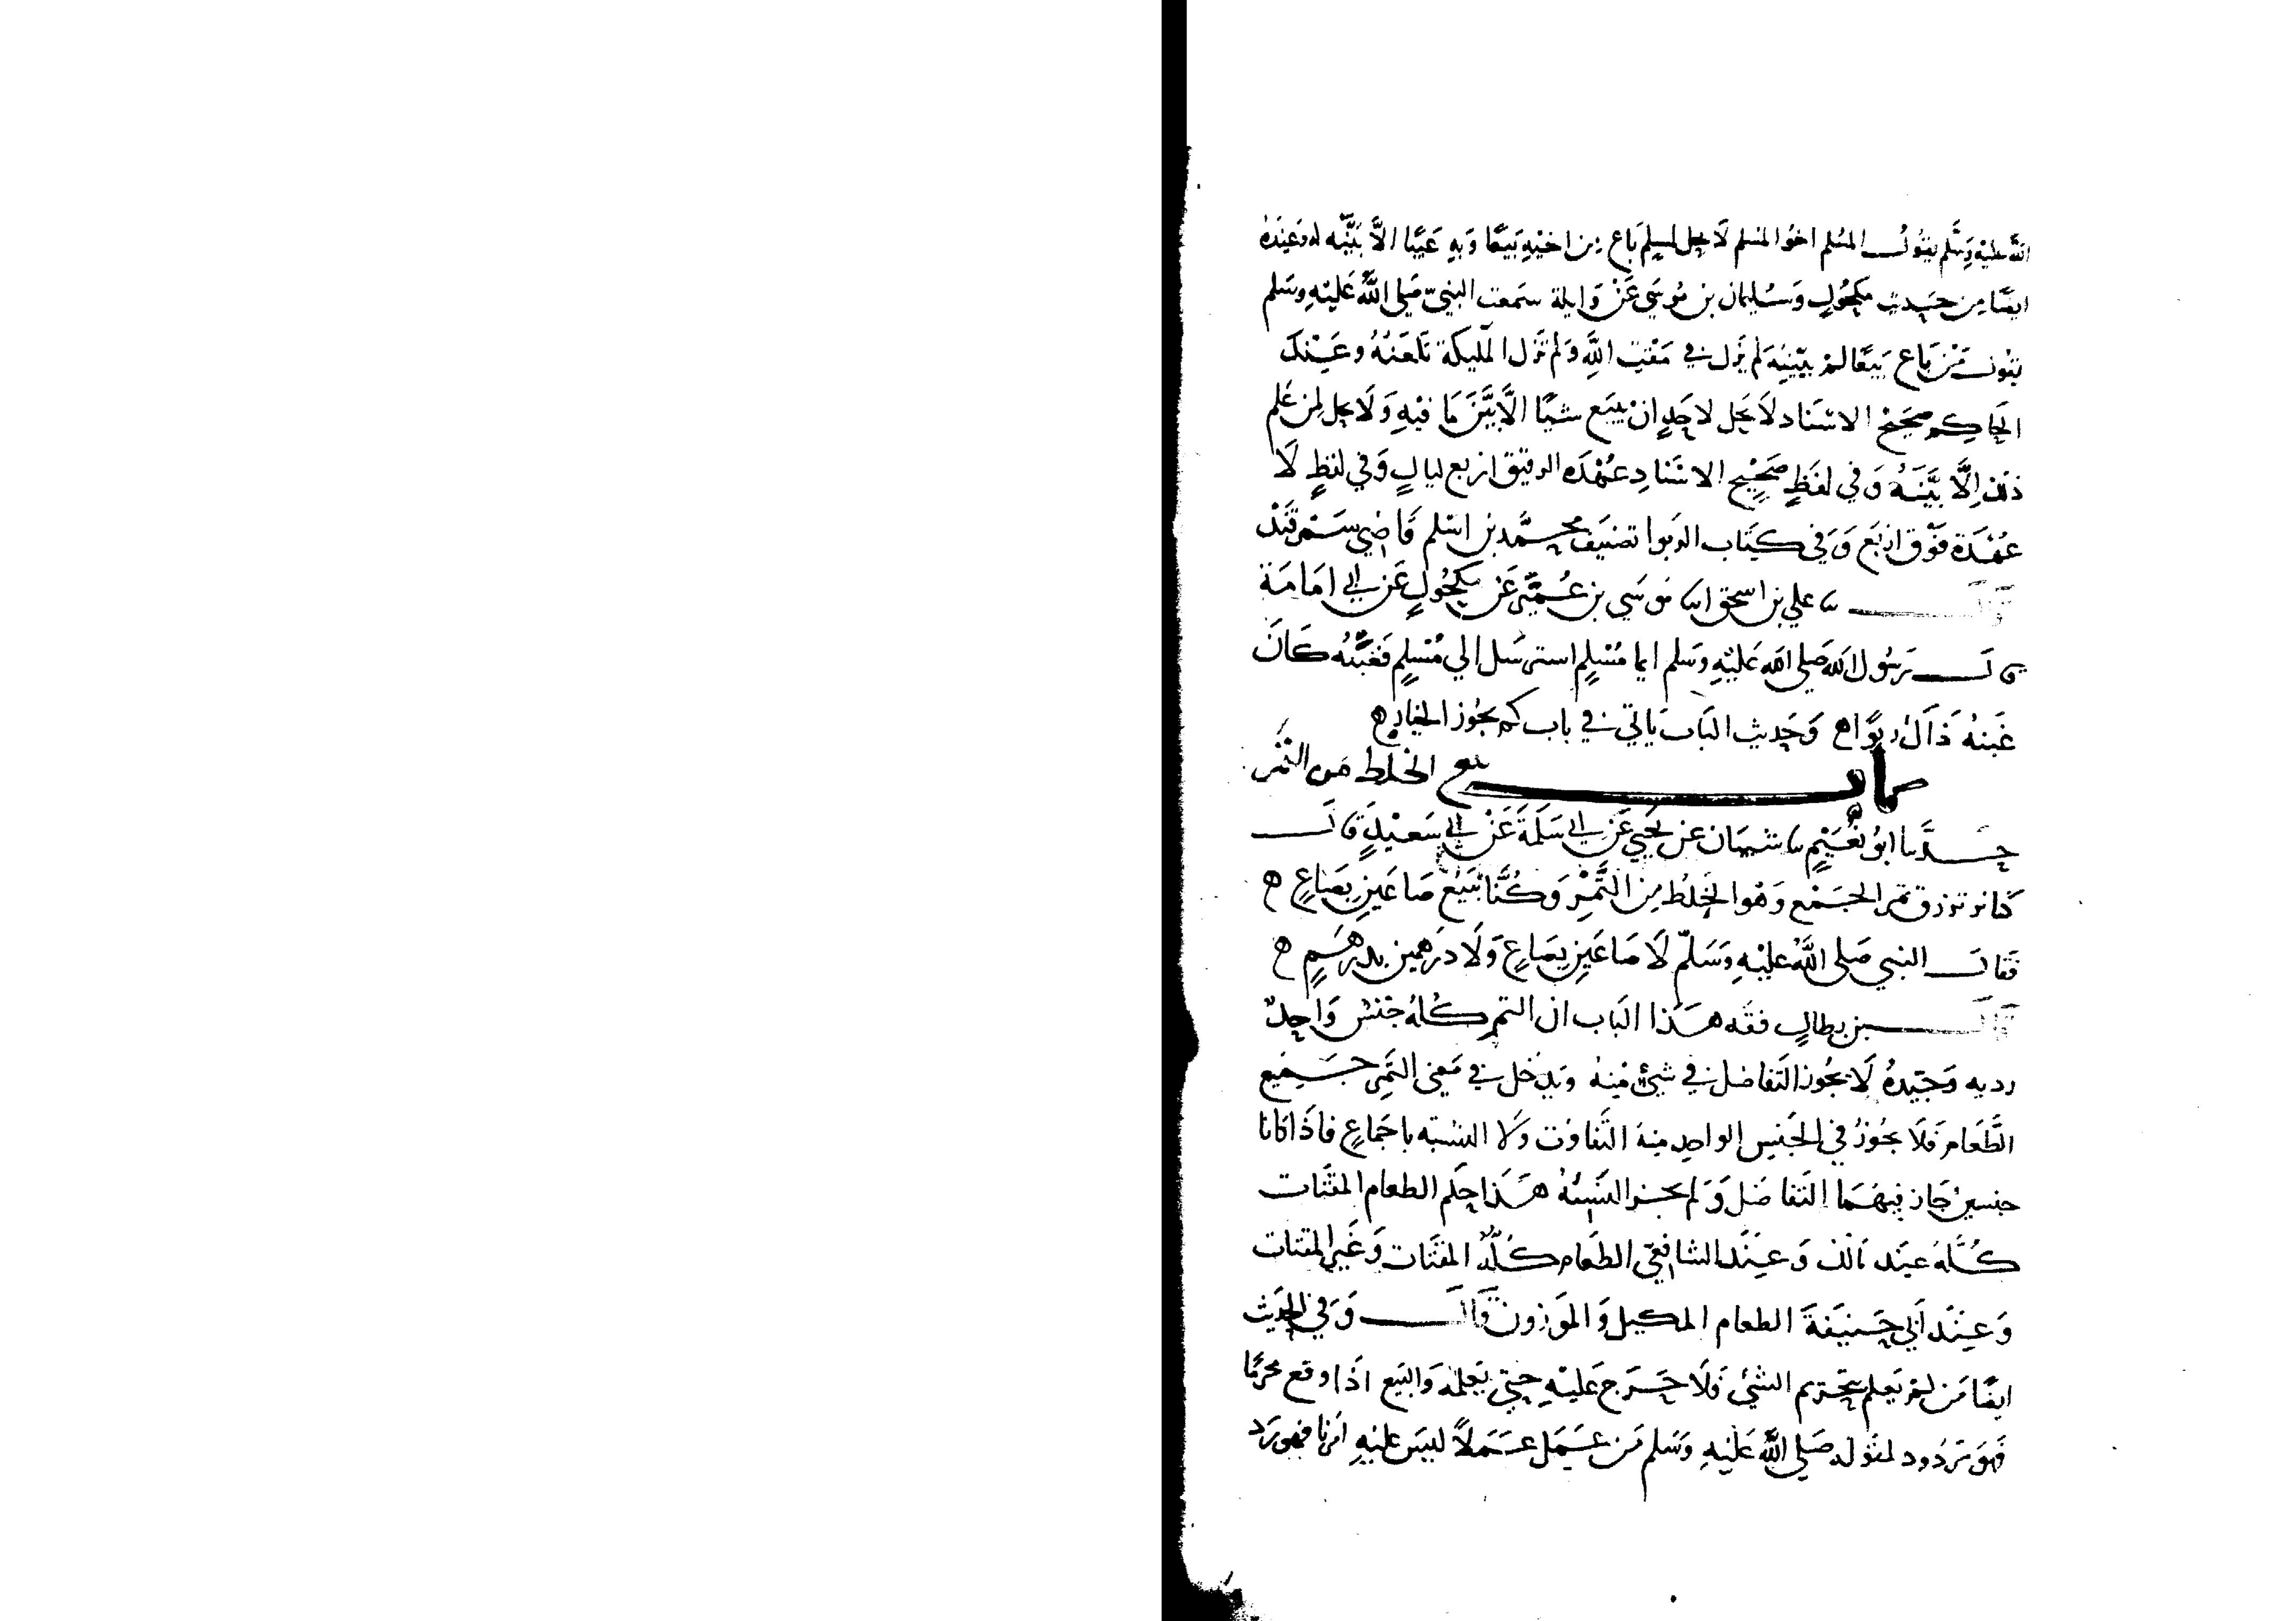 الله عليه وسلم يقول المسلم اخوا المسلم لا يحل لمسلم باع من اخيه بيعًا وبه عيبًا الا بينه له وعنده
ايضًا من حديث مكحول وسليمان بن موسى عن واثلة سمعت النبي صلى الله عليه وسلم
يقول من باع بيعًا لم يبينه لم يزل في مقت الله ولم تزل المليكة تلعنه وعند
الحاكم صحيح الاسناد لا يحل لاحد ان يبيع شيًا الا بين ما فيه ولا يحل لمن علم
ذلك الا بينه وفي لفظ صحيح الاسناد عهدة الرقيق اربع ليال وفي لفظ لا
عهدة فوق اربع وفي كتاب الربوا تصنيف محمد بن اسلم قاضي سمرقند
قال ثنا علي بن اسحق انا موسى بن عمير عن مكحول عن ابي امامة
قال رسول الله صلى الله عليه وسلم ايما مسلم استرسل الي مسلم فغبنه كان
غبنه ذلك ربوًا ه وحديث الباب ياتي في باب كم يجوز الخيار ه
باب بيع الخلط من التمر
حدثنا ابو نعيم ثنا شيبان عن يحيي عن ابي سلمة عن ابي سعيد قال
كنا نرزق تمر الجمع وهو الخلط من التمر وكنا نبيع صاعين بصاع ه
فقال النبي صلى الله عليه وسلم لا صاعين بصاع ولا درهمين بدرهم ه
قال بن بطال فقه هذا الباب ان التمر كله جنس واحد
رديه وجيده لا يجوز التفاضل في شيء منه ويدخل في معنى التمر جميع
الطعام فلا يجوز في الجنس الواحد منه التفاوت ولا النسيه باجماع فاذا كانا
جنسين جاز فيهما التفاضل ولم يجز النسيئة هذا حكم الطعام المقتات
كله عند مالك وعند الشافعي الطعام كله المقتات وغير المقتات
وعند ابي حنيفة الطعام المكيل والموزون قال وفي الحديث
ايضًا من لم يعلم بتحريم الشيء فلا حرج عليه حتى يعلمه والبيع اذا وقع محرمًا
فهو مردود لقوله صلى الله عليه وسلم من عمل عملاً ليس عليه امرنا فهو رد